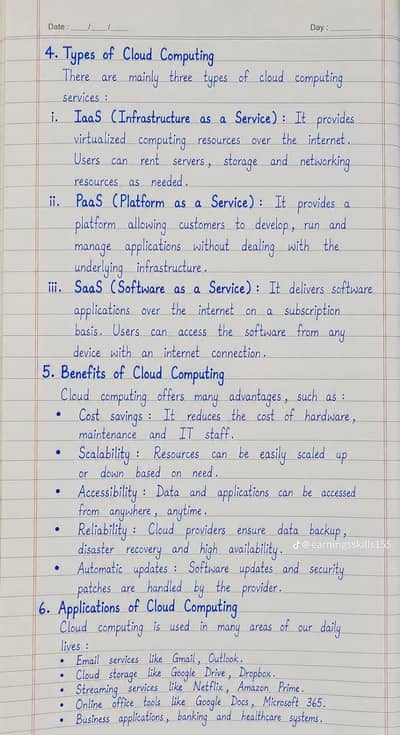 Date : ___/___/___ Day : ________
4. Types of Cloud Computing
There are mainly three types of cloud computing
services :
i. IaaS (Infrastructure as a Service) : It provides
virtualized computing resources over the internet.
Users can rent servers, storage and networking
resources as needed.
ii. PaaS (Platform as a Service) : It provides a
platform allowing customers to develop, run and
manage applications without dealing with the
underlying infrastructure.
iii. SaaS (Software as a Service) : It delivers software
applications over the internet on a subscription
basis. Users can access the software from any
device with an internet connection.
5. Benefits of Cloud Computing
Cloud computing offers many advantages, such as :
• Cost savings : It reduces the cost of hardware,
maintenance and IT staff.
• Scalability : Resources can be easily scaled up
or down based on need.
• Accessibility : Data and applications can be accessed
from anywhere, anytime.
• Reliability : Cloud providers ensure data backup,
disaster recovery and high availability.
@earningsskills155
• Automatic updates : Software updates and security
patches are handled by the provider.
6. Applications of Cloud Computing
Cloud computing is used in many areas of our daily
lives :
• Email services like Gmail, Outlook.
• Cloud storage like Google Drive, Dropbox.
• Streaming services like Netflix, Amazon Prime.
• Online office tools like Google Docs, Microsoft 365.
• Business applications, banking and healthcare systems.